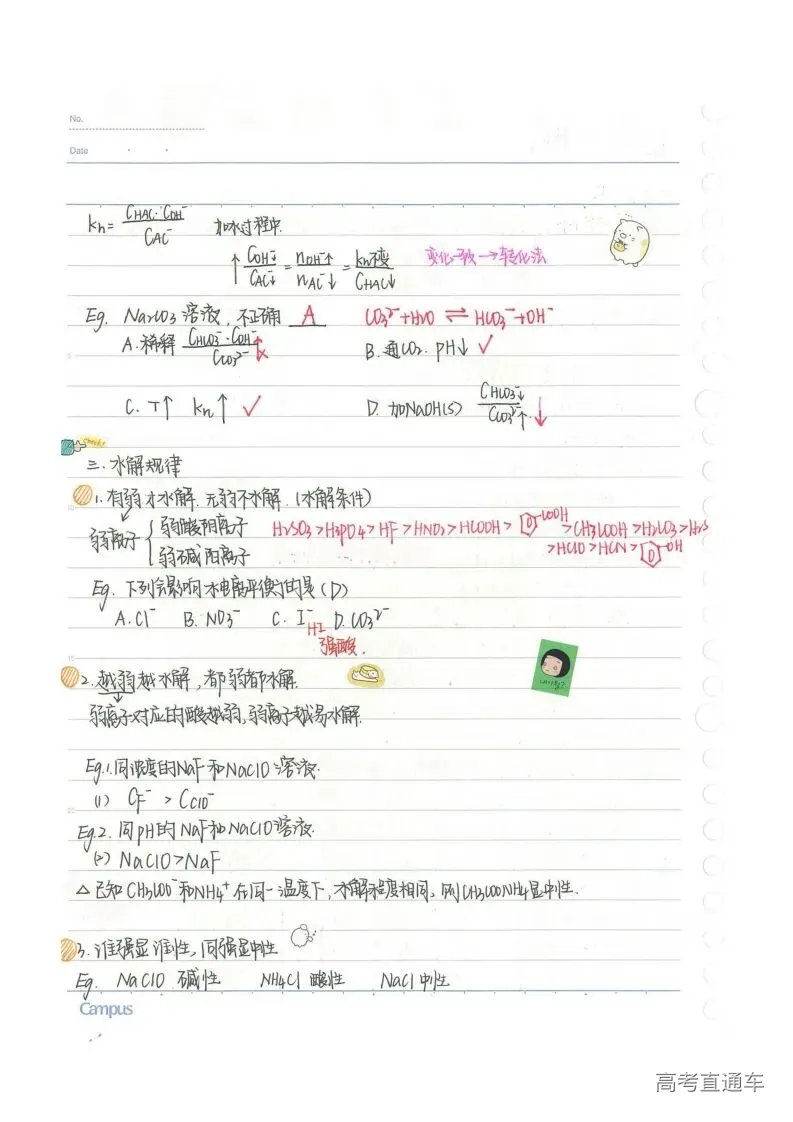 No.
Date
Kh= C HAC· C OH⁻ / C AC⁻ 加水过程中.
↑ C OH⁻↓ / C AC⁻↓ = n OH⁻↑ / n AC⁻↓ = Kh不变 / C HAC↓ 变化一致→转化法
Eg. Na₂CO₃ 溶液, 不正确 A CO₃²⁻+H₂O ⇌ HCO₃⁻+OH⁻
A.稀释 C HCO₃⁻·C OH⁻ / C CO₃²⁻ ↑ × B.通CO₂. pH↓ ✓
C. T↑ Kh↑ ✓ D. 加NaOH(s) C HCO₃⁻↓ / C CO₃²⁻↑ ↓
Check!
三.水解规律
1.有弱才水解.无弱不水解.(水解条件)
弱离子 { 弱酸阴离子 H₂SO₃>H₃PO₄>HF>HNO₂>HCOOH> COOH >CH₃COOH>H₂CO₃>H₂S
弱碱阳离子 >HClO>HCN> OH
Eg. 下列会影响水电离平衡的是(D)
A.Cl⁻ B. NO₃⁻ C. I⁻ D.CO₃²⁻
HI
强酸.
2.越弱越水解,都弱都水解.
弱离子对应的酸越弱,弱离子越易水解.
Eg.1.同浓度的NaF和NaClO溶液.
(1) C F⁻ > C ClO⁻
Eg.2. 同pH的NaF和NaClO溶液.
(2) NaClO>NaF
△已知CH₃COO⁻和NH₄⁺在同一温度下,水解程度相同,则CH₃COONH₄显中性.
3.谁强显谁性,同强显中性
Eg. NaClO 碱性 NH₄Cl 酸性 NaCl 中性
Campus
高考直通车